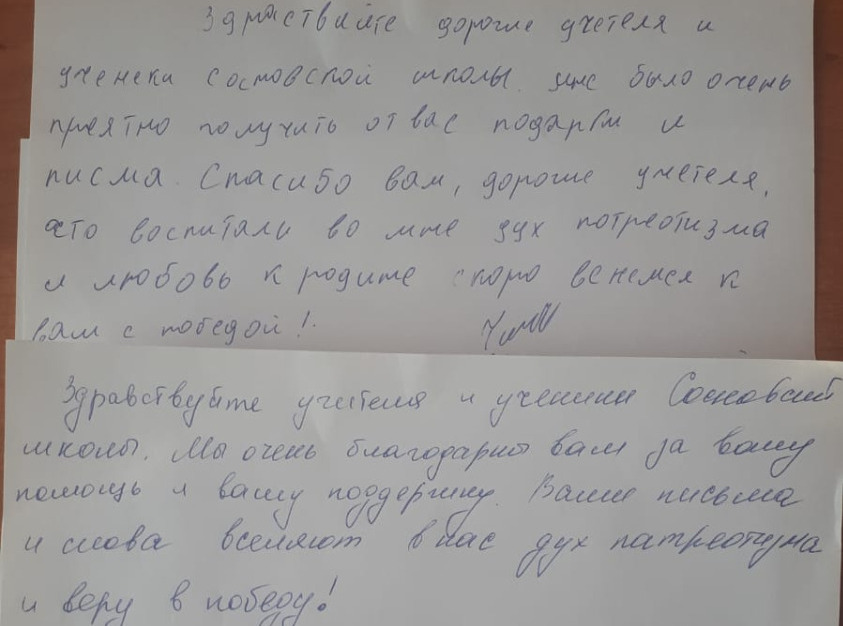 Здраствийте дорогие учетеля и
ученеки сосновской школы. мне было очень
преятно получить от вас подарки и
писма. Спасибо вам, дорогие учетеля,
что воспитали во мне дух потреотизма
и любовь к родине скоро венемся к
вам с победой!
Здравствуйте учителя и ученики Сосновский
школы. Мы очень благодарны вам за вашу
помощь и вашу поддержку. Ваши письма
и слова вселяют в нас дух патреотизма
и веру в победу!